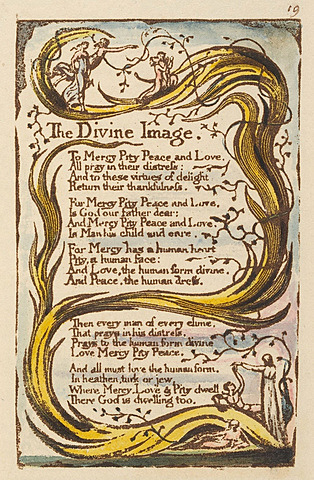 19
The Divine Image.
To Mercy Pity Peace and Love,
All pray in their distress:
And to these virtues of delight
Return their thankfulness.
For Mercy Pity Peace and Love,
Is God our father dear:
And Mercy Pity Peace and Love,
Is Man his child and care.
For Mercy has a human heart
Pity, a human face:
And Love, the human form divine,
And Peace, the human dress.
Then every man of every clime,
That prays in his distress,
Prays to the human form divine
Love Mercy Pity Peace.
And all must love the human form,
In heathen, turk or jew,
Where Mercy, Love & Pity dwell
There God is dwelling too.